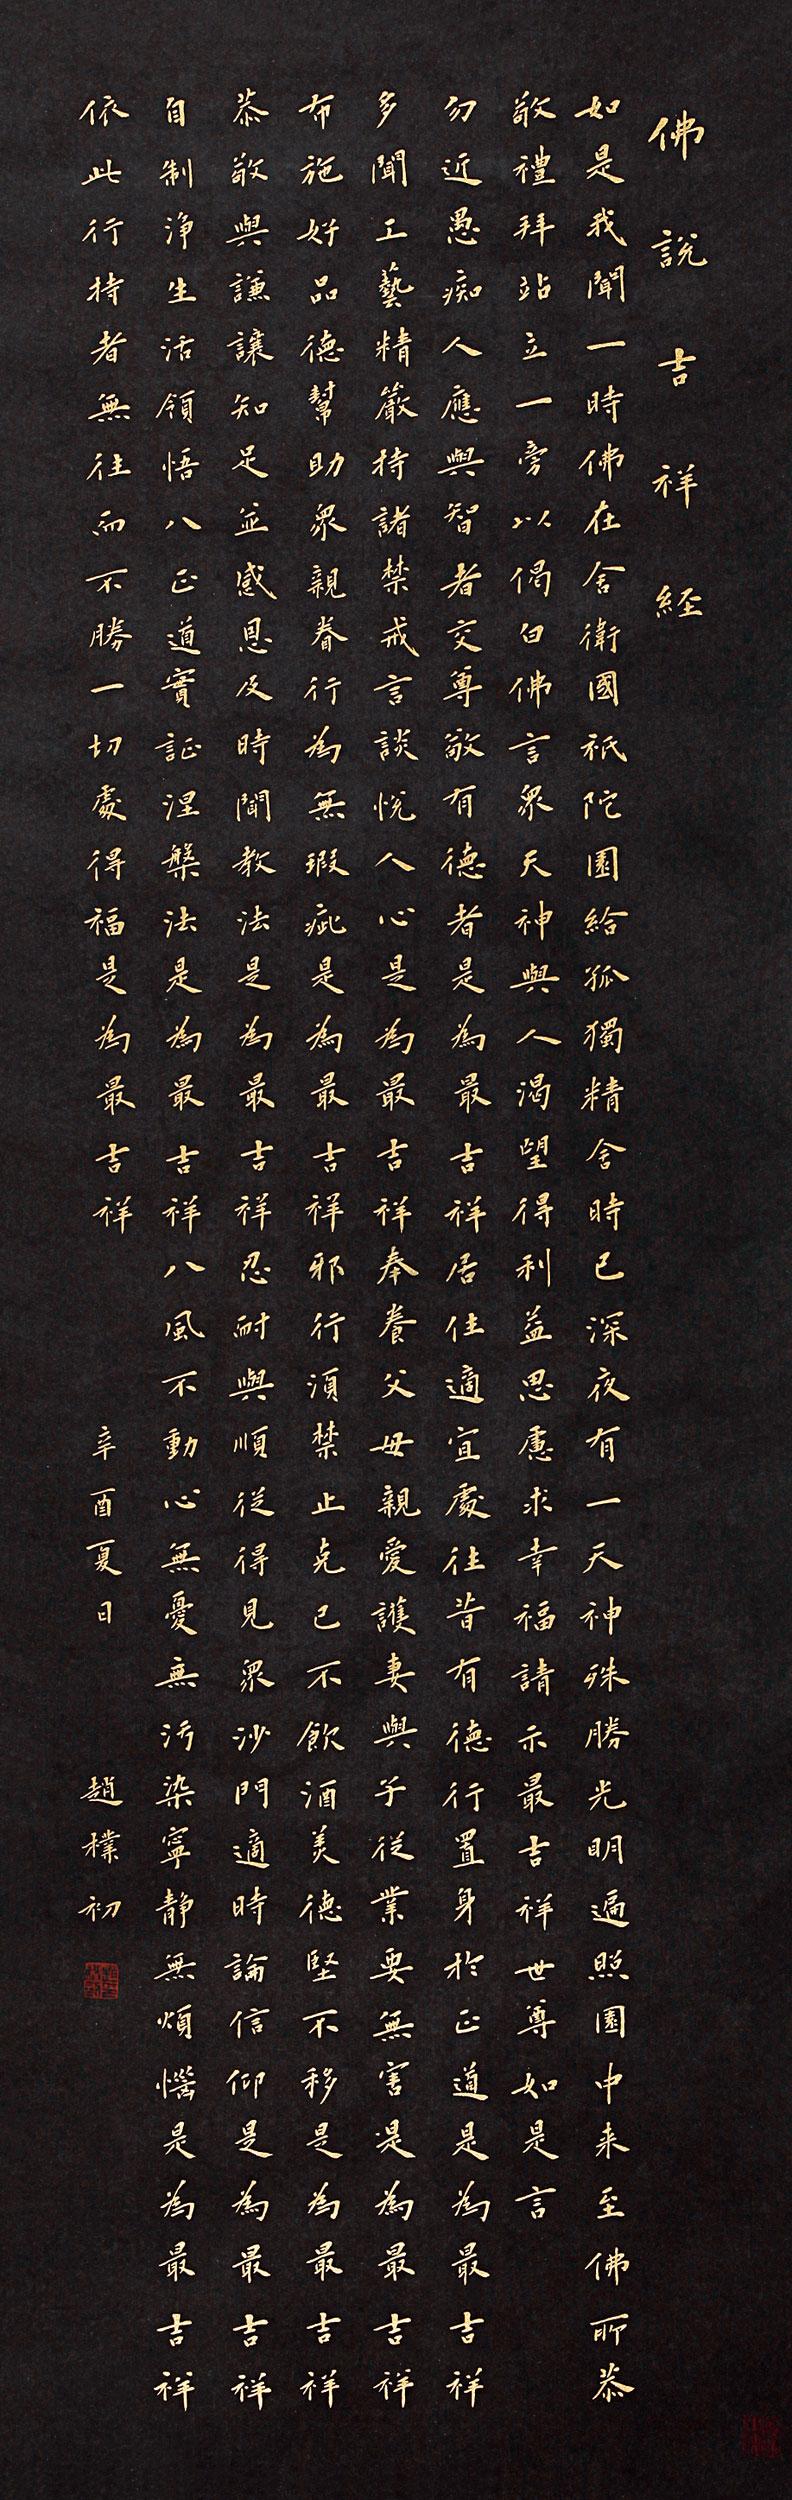 佛說吉祥經
如是我聞一時佛在舍衛國祇陀園給孤獨精舍時已深夜有一天神殊勝光明遍照園中来至佛所恭
敬禮拜站立一旁以偈白佛言衆天神與人渴望得利益思慮求幸福請示最吉祥世尊如是言
勿近愚痴人應與智者交尊敬有德者是為最吉祥居住適宜處往昔有德行置身於正道是為最吉祥
多聞工藝精嚴持諸禁戒言談悅人心是為最吉祥奉養父母親愛護妻與子從業要無害是為最吉祥
布施好品德幫助衆親眷行為無瑕疵是為最吉祥邪行須禁止克己不飲酒美德堅不移是為最吉祥
恭敬與謙讓知足並感恩及時聞教法是為最吉祥忍耐與順從得見衆沙門適時論信仰是為最吉祥
自制淨生活領悟八正道實証涅槃法是為最吉祥八風不動心無憂無污染寧靜無煩惱是為最吉祥
依此行持者無往而不勝一切處得福是為最吉祥 辛酉夏日 趙樸初